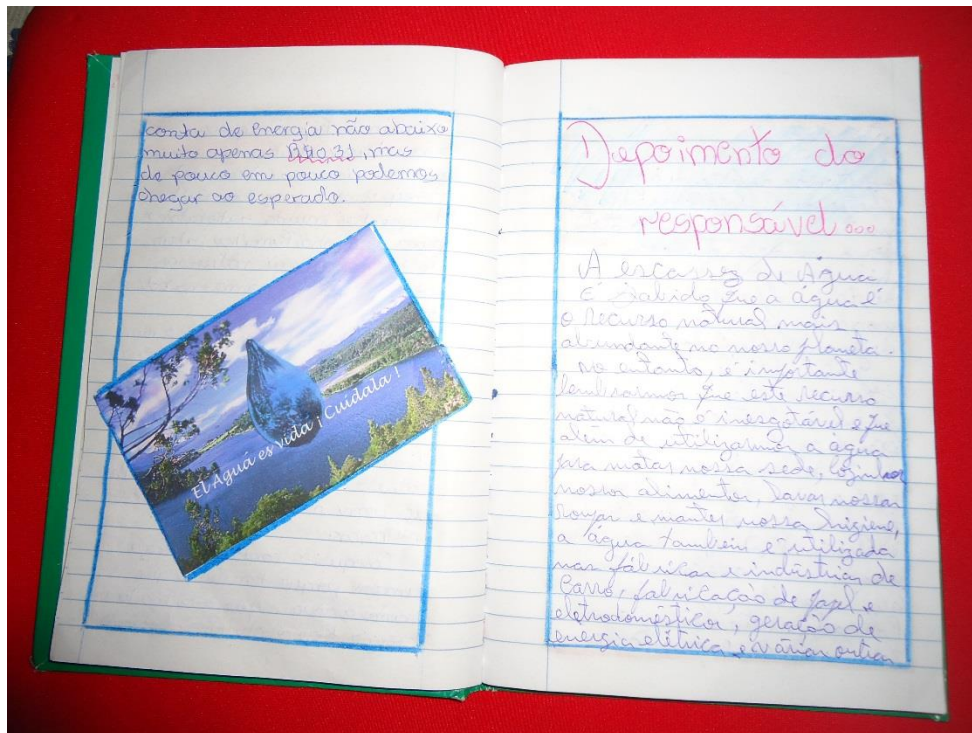 conta de energia não abaixo
muito apenas R$0,31, mas
de pouco em pouco podemos
chegar ao esperado.
El Aguá es vida ¡ Cuidala !
Depoimento do
responsável...
A escassez de Água
É sabido que a água é
o recurso natural mais
abundante no nosso planeta.
no entanto, é importante
lembrarmos que este recurso
natural não é inesgotável e que
além de utilizarmos a água
pra matar nossa sede, cozinhar
nossos alimentos, lavar nossas
roupas e manter nossa higiene,
a água também é utilizada
nas fábricas e indústrias de
Carro, fabricação de papel e
eletrodomésticos, geração de
energia elétrica e várias outras